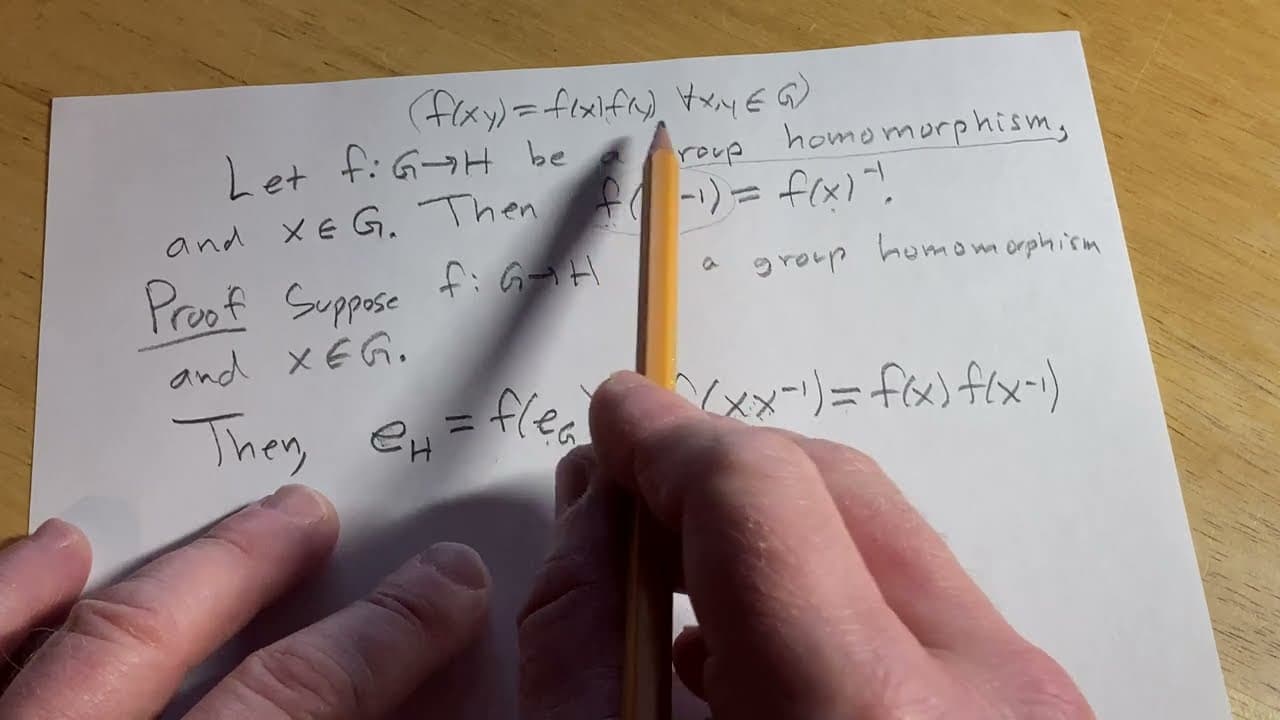 (f(xy) = f(x)f(y) ∀x,y ∈ G)
Let f: G→H be a group homomorphism,
and x ∈ G. Then f( -1) = f(x)⁻¹.
Proof Suppose f: G→H a group homomorphism
and x ∈ G.
Then, e_H = f(e_G (xx⁻¹) = f(x) f(x⁻¹)